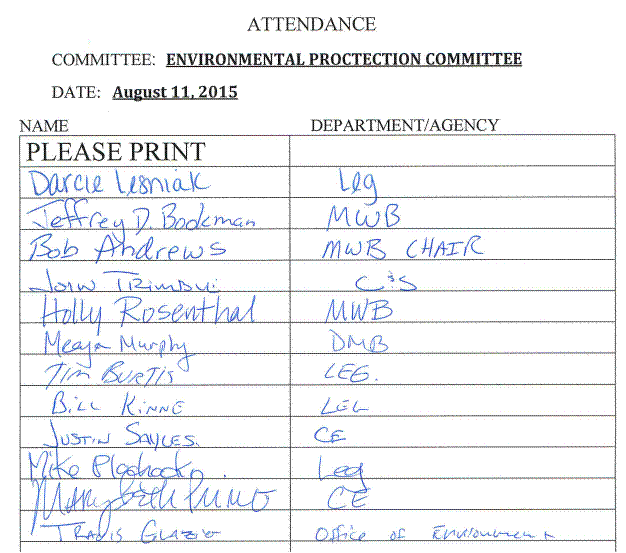 ATTENDANCE
COMMITTEE: ENVIRONMENTAL PROCTECTION COMMITTEE
DATE: August 11, 2015
NAME DEPARTMENT/AGENCY
PLEASE PRINT
Darcie Lesniak Leg
Jeffrey D. Bookman MWB
Bob Andrews MWB CHAIR
John C&S
Holly Rosenthal MWB
Meaya Murphy DMB
Tim Burtis LEG.
Bill Kinne LEG
Justin Sayles. CE
Mike Leg
CE
Travis Glazier Office of Environment